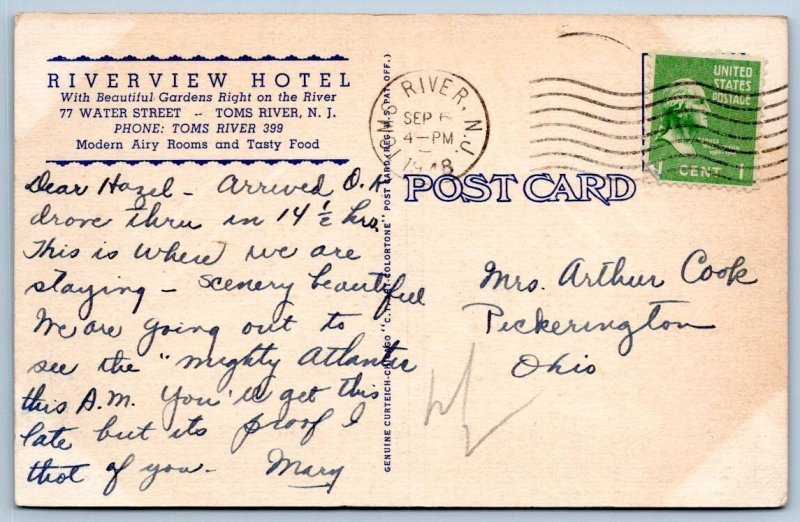 RIVERVIEW HOTEL
With Beautiful Gardens Right on the River
77 WATER STREET -- TOMS RIVER, N. J.
PHONE: TOMS RIVER 399
Modern Airy Rooms and Tasty Food
Dear Hazel - Arrived O.K.
drove thru in 14 ½ hrs.
This is where we are
staying - scenery beautiful
We are going out to
see the "mighty Atlantic
this A.M. You'll get this
late but its proof I
thot of you - Mary
GENUINE CURTEICH-CHICAGO "C.T. ART-COLORTONE" POST CARD (REG. U.S. PAT. OFF.)
TOMS RIVER, N.J.
SEP 6
4-PM
1948
UNITED
STATES
POSTAGE
1 CENT 1
POST CARD
Mrs. Arthur Cook
Pickerington
Ohio